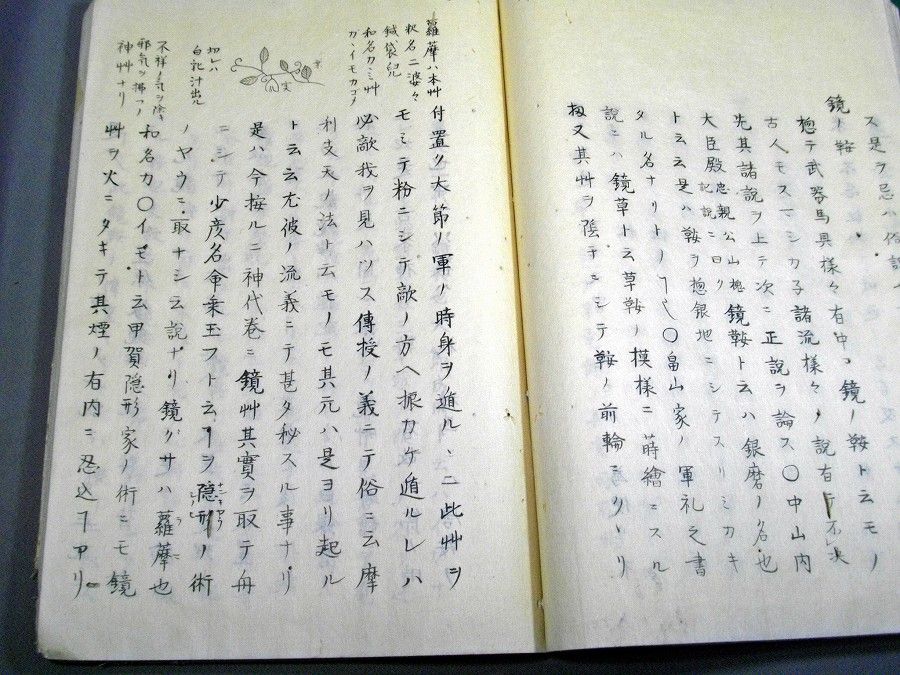 ス是ヲ忌ハ俗説
鏡ノ鞍
惣テ武器馬具様々有中ニ鏡ノ鞍ト云モノ
古人モスマシカ子諸流様々ノ説有テ不決
先其諸説ヲ上テ次ニ正説ヲ論ス〇中山内
大臣殿忠親公山槐記説ニ曰ク鏡鞍ト云ハ銀磨ノ名也
ト云云是ハ鞍ヲ惣銀地ニシテスリミカキ
タル名ナリトノ〇畠山家ノ軍礼之書
説ニハ鏡草ト云草鞍ノ模様ニ蒔繪ニスル
扨又其艸ヲ陰干ニシテ鞍ノ前輪
付置ク大節ノ軍ノ時身ヲ遁ルヽニ此艸ヲ
モミテ粉ニシテ敵ノ方ヘ振カケ遁ルレハ
必敵我ヲ見ハツス傳授ノ義ニテ俗ニ云摩
利支天ノ法ト云モノモ其元ハ是ヨリ起ル
ト云云尤彼ノ流義ニテ甚タ秘スル事ナリ
是ハ今按ルニ神代巻ニ鏡艸其實ヲ取テ舟
ニシテ少彦名命乗玉フト云ヿヲ隠形ノ術
ノヤウニ取ナシ云説ナリ鏡グサハ蘿藦也
和名カ〇イモト云甲賀隠形家ノ術ニモ鏡
艸ヲ火ニタキテ其煙ノ有内ニ忍込ヿアリ
蘿藦ハ本艸
釈名ニ婆々
鍼袋児
和名カヽミ艸
カヽイモカコメ
切レハ
白乳汁出ル
不祥ノ気ヲ除
邪気ヲ掃フノ
神艸ナリ